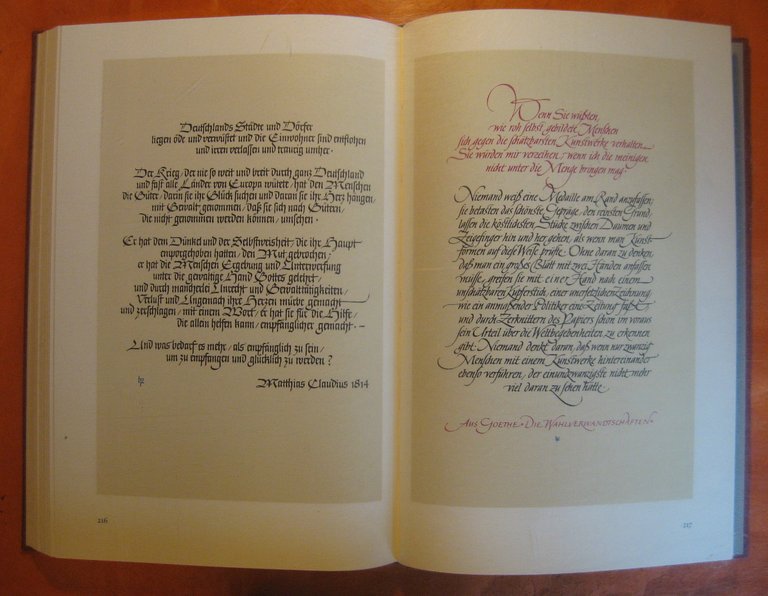 Deutschlands Städte und Dörfer
liegen öde und verwüstet und die Einwohner sind entflohen
und irren verlassen und traurig umher.
Der Krieg, der nie so weit und breit durch ganz Deutschland
und fast alle Länder von Europa wütete, hat den Menschen
die Güter, darin sie ihr Glück suchen und daran sie ihr Herz hangen,
mit Gewalt genommen, daß sie sich nach Gütern,
die nicht genommen werden können, umsehen.
Er hat den Dünkel und der Selbstweisheit, die ihr Haupt
emporgehoben hatten, den Mut gebrochen,
er hat die Menschen Ergebung und Unterwerfung
unter die gewaltige Hand Gottes gelehrt
und durch mancherlei Unrecht und Gewalttätigkeiten,
Verlust und Ungemach ihre Herzen mürbe gemacht
und zerschlagen, mit einem Wort, er hat sie für die Hilfe,
die allein helfen kann, empfänglicher gemacht.
Und was bedarf es mehr, als empfänglich zu sein,
um zu empfangen und glücklich zu werden?
Matthias Claudius 1814
216
Wenn Sie wüßten,
wie roh selbst gebildete Menschen
sich gegen die schätzbarsten Kunstwerke verhalten,
Sie würden mir verzeihen, wenn ich die meinigen
nicht unter die Menge bringen mag.
Niemand weiß eine Medaille am Rand anzufassen;
sie betasten das schönste Gepräge, den reinsten Grund,
lassen die köstlichsten Stücke zwischen Daumen und
Zeigefinger hin und her gehen, als wenn man Kunst-
formen auf diese Weise prüfte. Ohne daran zu denken,
daß man ein großes Blatt mit zwei Händen anfassen
müsse, greifen sie mit einer Hand nach einem
unschätzbaren Kupferstich, einer unersetzlichen Zeichnung,
wie ein anmaßender Politiker eine Zeitung faßt
und durch Zerknittern des Papiers schon im voraus
sein Urteil über die Weltbegebenheiten zu erkennen
gibt. Niemand denkt daran, daß wenn nur zwanzig
Menschen mit einem Kunstwerke hintereinander
ebenso verführen, der einundzwanzigste nicht mehr
viel daran zu sehen hätte.
Aus Goethe »Die Wahlverwandtschaften«
217